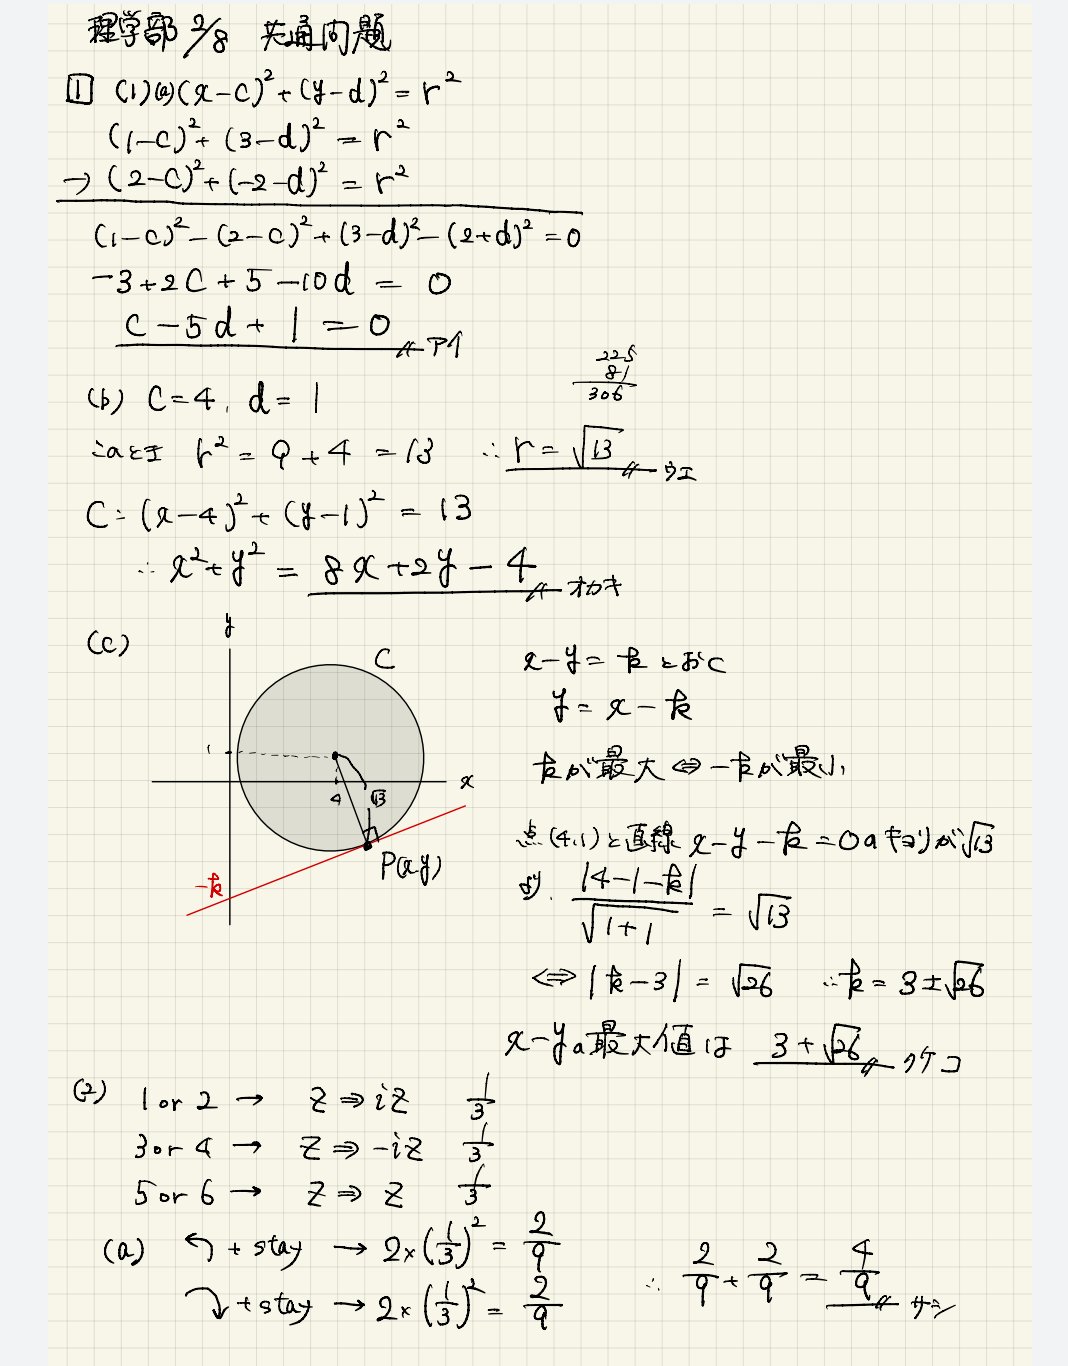 理学部 2/8 共通問題
1 (1)(a) (x-c)²+(y-d)²=r²
(1-c)²+(3-d)²=r²
→ (2-c)²+(-2-d)²=r²
(1-c)²-(2-c)²+(3-d)²-(2+d)²=0
-3+2c+5-10d=0
c-5d+1=0 アイ
225
81
306
(b) c=4, d=1
このとき r²=9+4=13 ∴r=√13 ウエ
C:(x-4)²+(y-1)²=13
∴x²+y²=8x+2y-4 オカキ
(c)
y
C
1
4
√13
x
P(x,y)
-k
x-y=kとおく
y=x-k
kが最大⇔-kが最小
点(4,1)と直線 x-y-k=0のキョリが√13
より. |4-1-k|/√(1+1) = √13
⇔|k-3|=√26 ∴k=3±√26
x-yの最大値は 3+√26 クケコ
(2) 1 or 2 → z⇒iz 1/3
3 or 4 → z⇒-iz 1/3
5 or 6 → z⇒z 1/3
(a) ↰ + stay → 2×(1/3)²=2/9
⤵ + stay → 2×(1/3)²=2/9
∴ 2/9+2/9=4/9 サシ